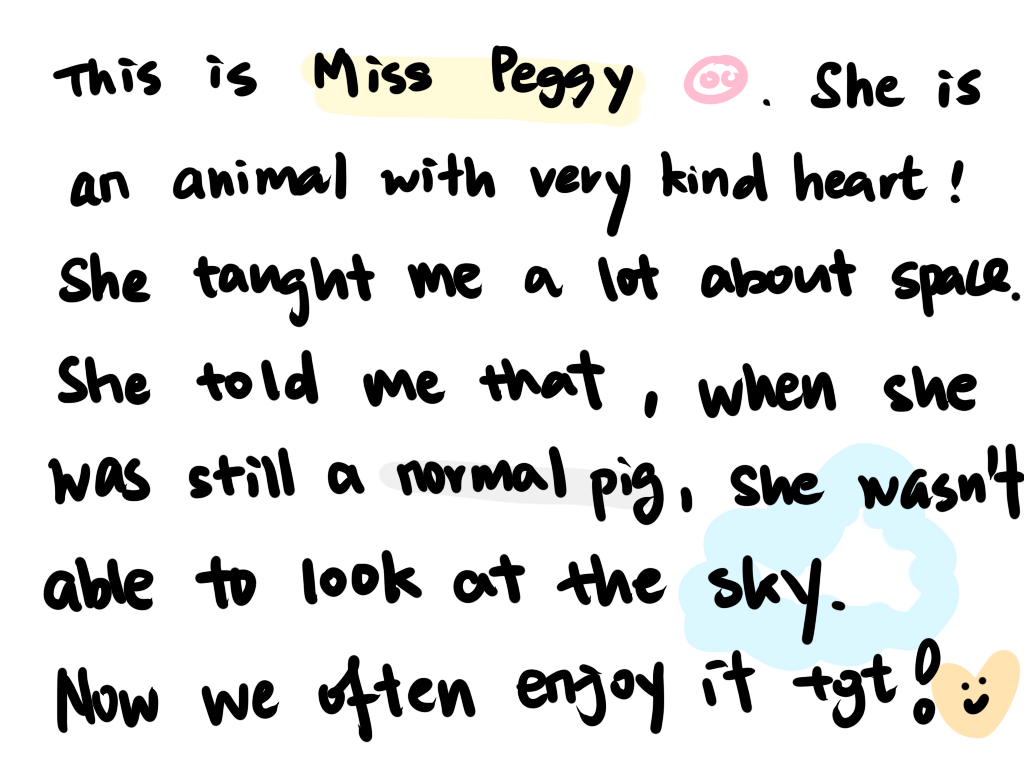 This is Miss Peggy . She is
an animal with very kind heart !
She taught me a lot about space.
She told me that , when she
was still a normal pig, she wasn't
able to look at the sky.
Now we often enjoy it tgt!